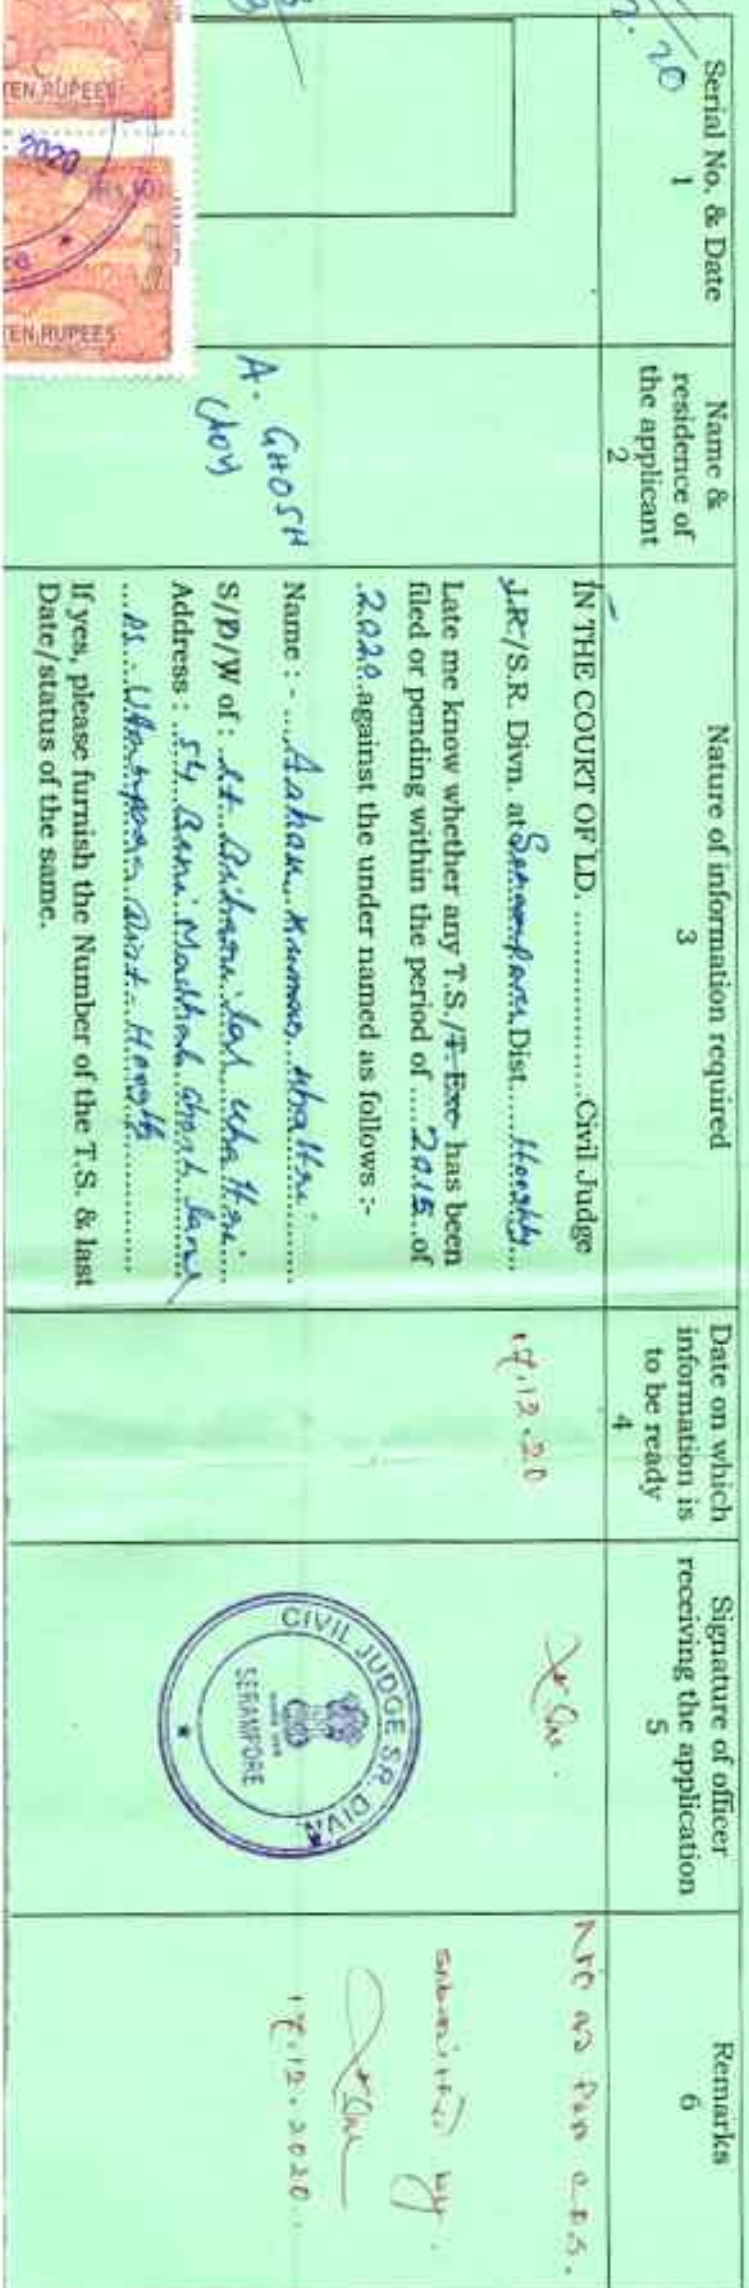 2.20
Serial No. & Date
1
Name &
residence of
the applicant
2
Nature of information required
3
Date on which
information is
to be ready
4
Signature of officer
receiving the application
5
Remarks
6
TEN RUPEES
2020
TEN RUPEES
A. GHOSH
(Adv)
IN THE COURT OF LD. ........................Civil Judge
J.R./S.R. Divn. at Serampore Dist.....Hooghly...
Late me know whether any T.S./T. Exe has been
filed or pending within the period of .....2015..of
.2020..against the under named as follows :-
Name : - ....Ashok Kumar Khattri
S/D/W of : Lt. Behari Lal Khattri
Address : ...54 Beni Madhab Ghosh Lane
PS - Uttarpara Dist - Hooghly
If yes, please furnish the Number of the T.S. & last
Date/status of the same.
17.12.20
CIVIL JUDGE SR. DIVN.
SERAMPORE
No as per C.D.S.
submitted by
17.12.2020